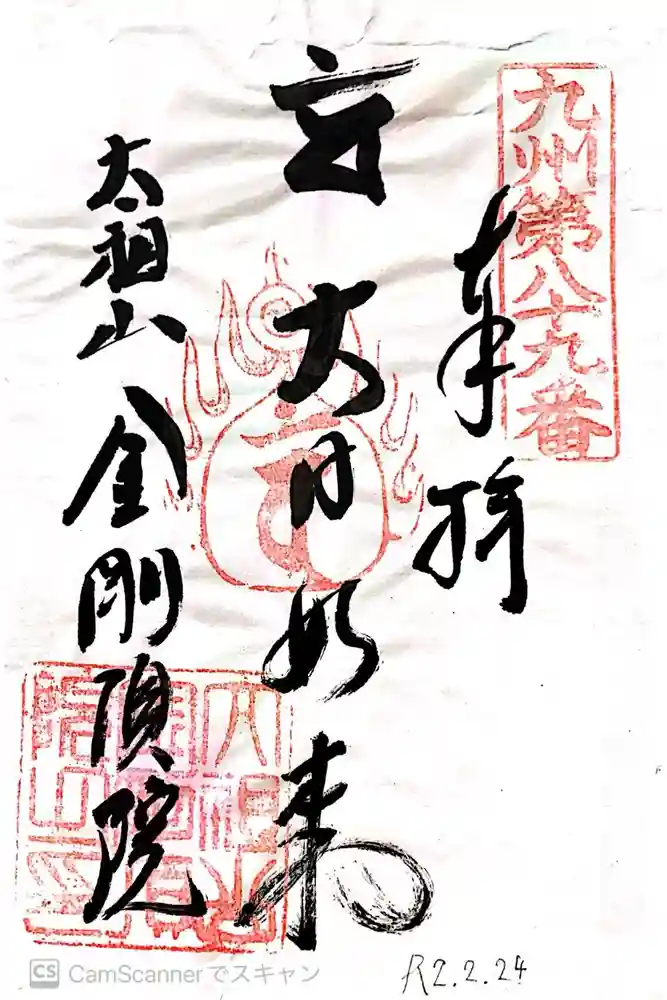 九州第八十九番
奉拝
大日如来
大祖山 金剛頂院
R2.2.24
CS CamScannerでスキャン